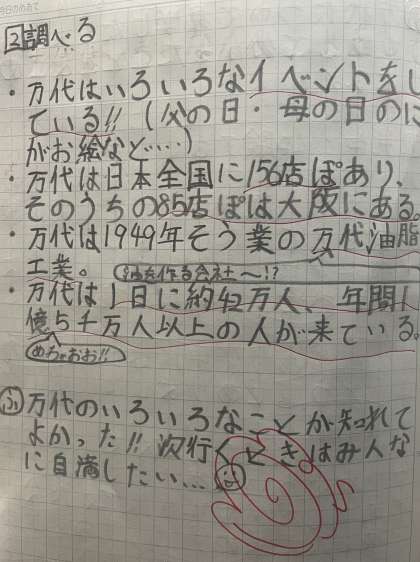 今日のめあて
②調べる
・万代はいろいろなイベントをし
ている!! (父の日・母の日のに
がお絵など…)
・万代は日本全国に156店ぽあり、
そのうちの85店ぽは大阪にある
・万代は1949年そう業の万代油脂
工業。
油を作る会社〜!?
・万代は1日に約42万人、年間1
億5千万人以上の人が来ている。
めちゃおお!!
ふ 万代のいろいろなことが知れて
よかった!! 次行くときはみんな
に自満したい…